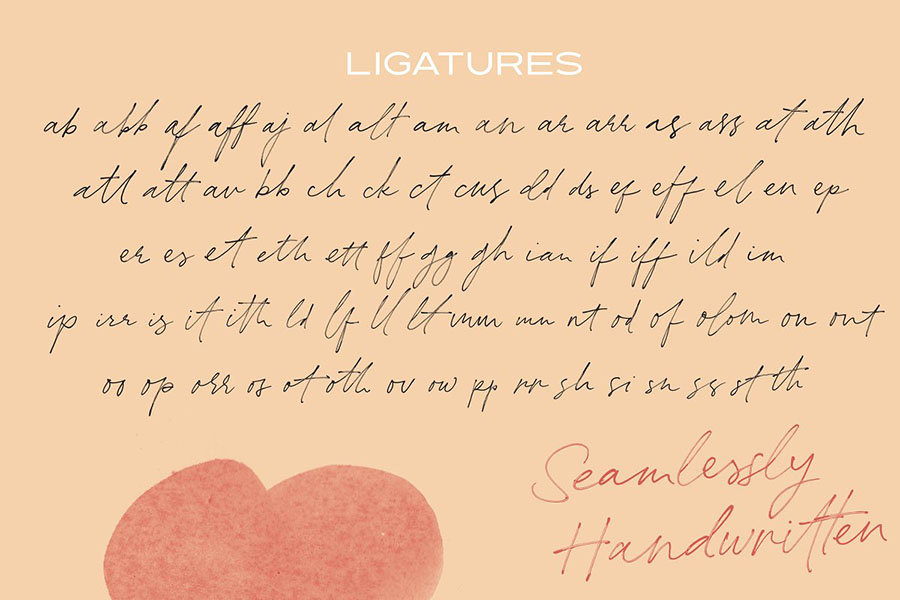 LIGATURES
ab abb af aff aj al alt am an ar arr as ass at ath
atl att av bb ch ck ct cus dd ds ef eff el en ep
er es et eth ett ff gg gh ian if iff ild im
ip irr is it ith ld lf ll lt mm nn nt od of olom on ont
oo op orr os ot oth ov ow pp rr sh si sn ss st th
Seamlessly
Handwritten